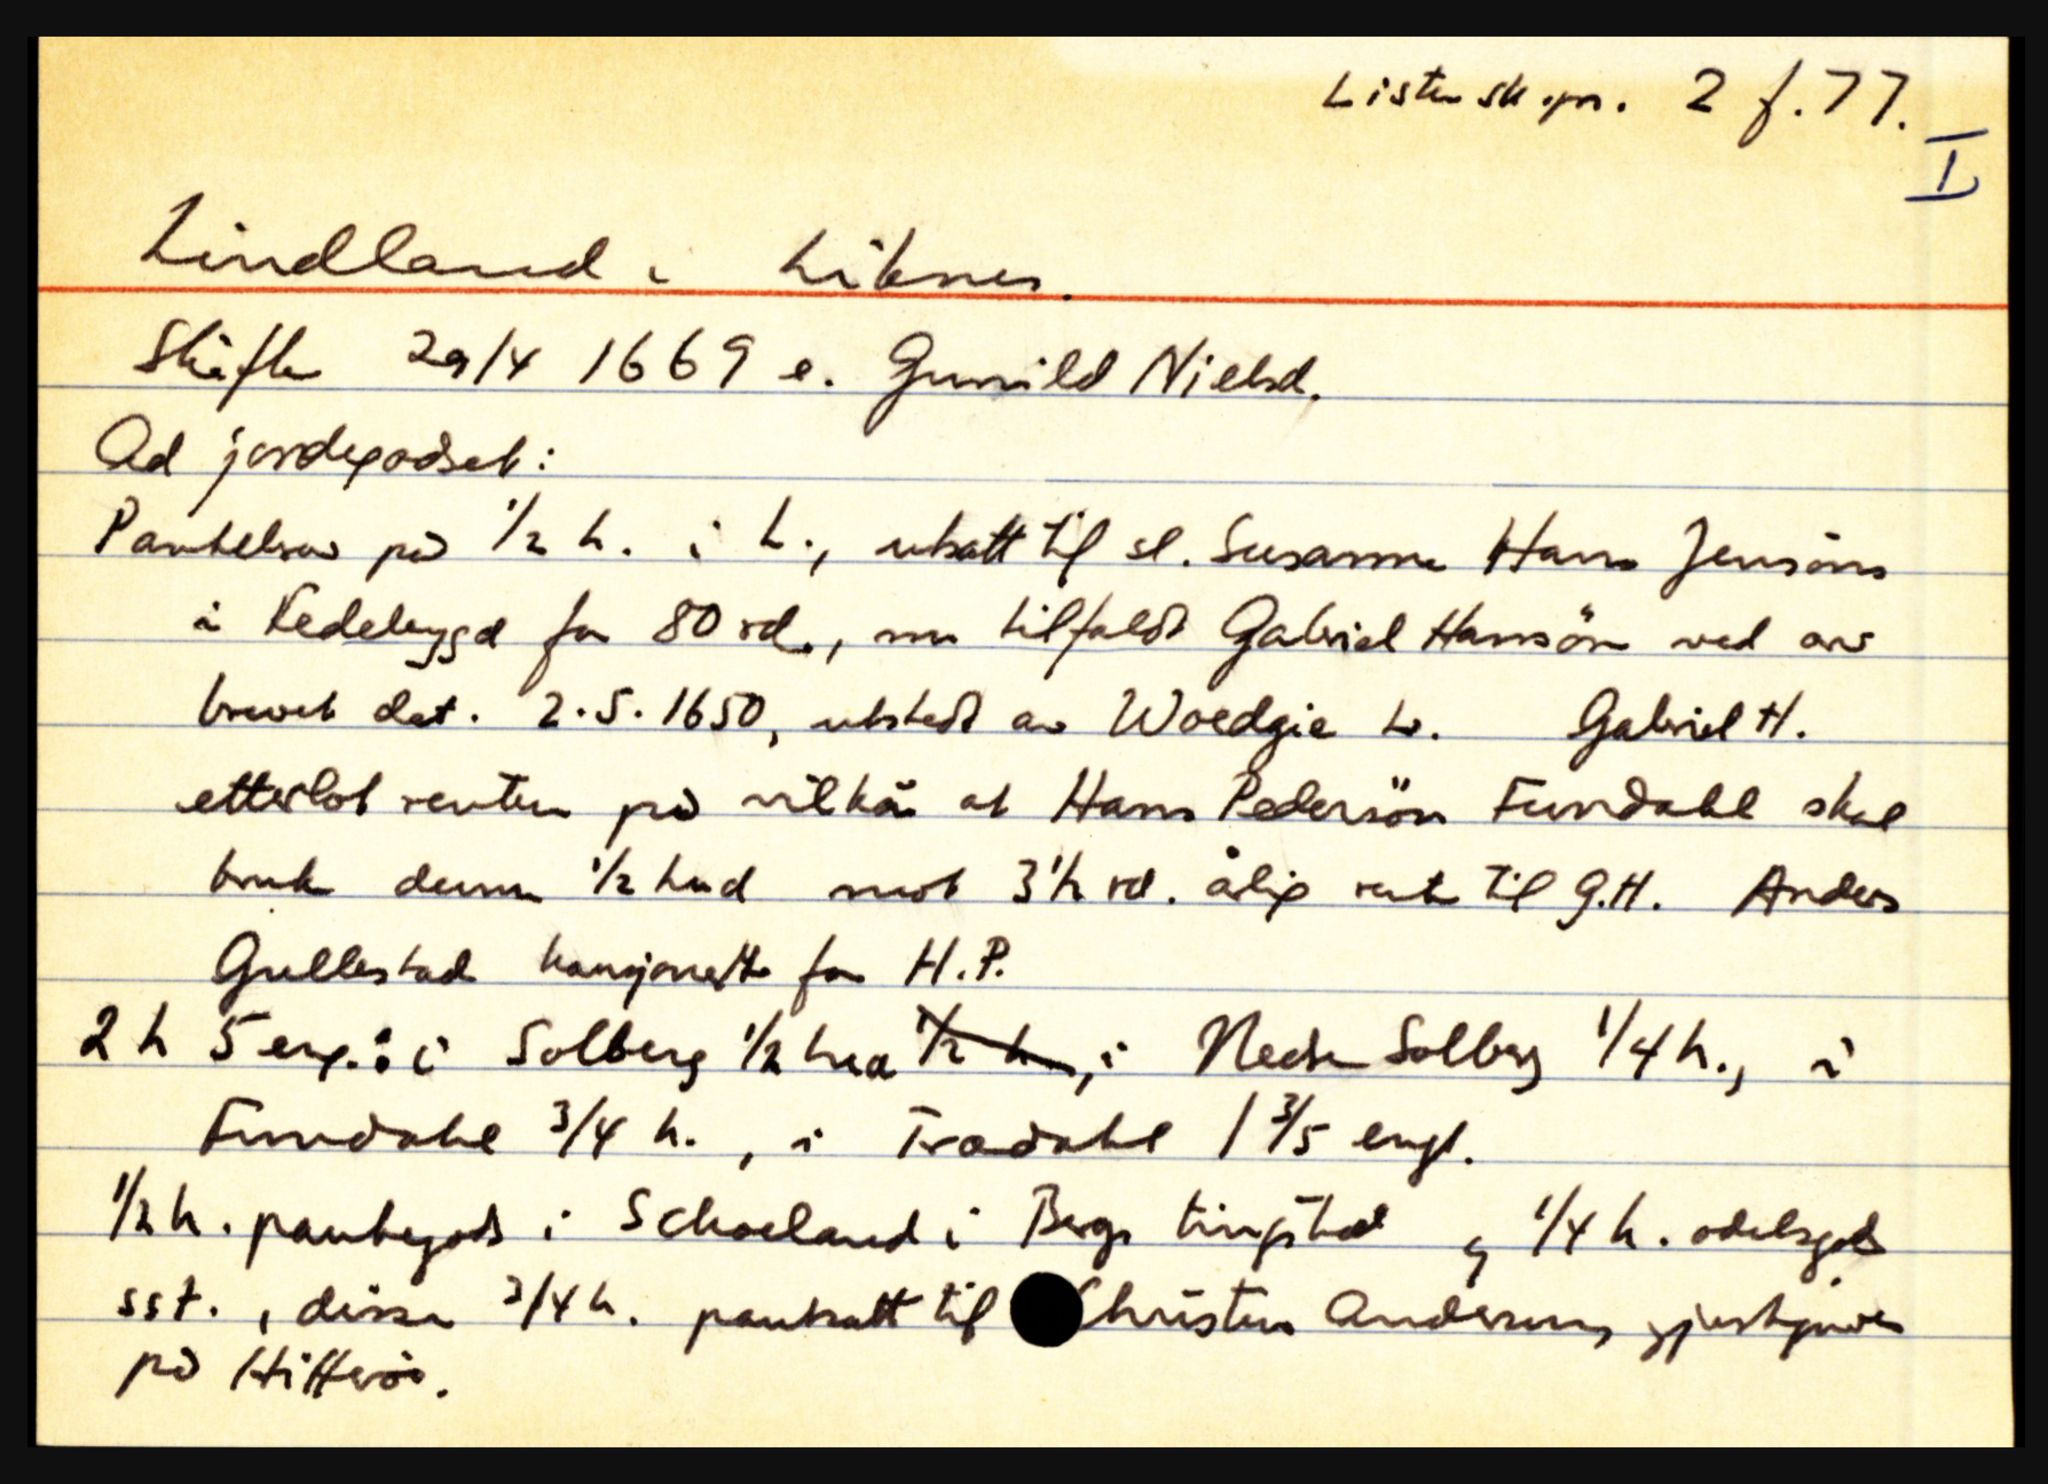 Lister sk.pr. 2 f. 77.
I
Lindland i Liknes.
Skifte 29/4 1669 e. Gunnild Nielsd.
Ad jordegodset:
Pantebrev på 1/2 h. i L., utsatt til sl. Susanna Hans Jensöns
i Fedebygd for 80 rd., nu tilfaldt Gabriel Hansön ved arv
brevet dat. 2.5.1650, utstedt av Woedgie L. Gabriel H.
etterlot renten på vilkår at Hans Pedersön Fundahl skal
bruke denne 1/2 hud mot 3 1/2 rd. årlig rente til G.H. Anders
Gullestad kausjonerte for H.P.
2 h 5 eng.: i Solberg 1/2 hud 1/2 h., i Nedre Solberg 1/4 h., i
Fundahl 3/4 h., i Tradahl 1 3/5 engl.
1/2 h. pantegods i Schoeland i Bergs tingsted og 1/4 h. odelsgods
sst., disse 3/4 h. pantsatt til Christen Andersens, gjestgiver
på Hitterö.